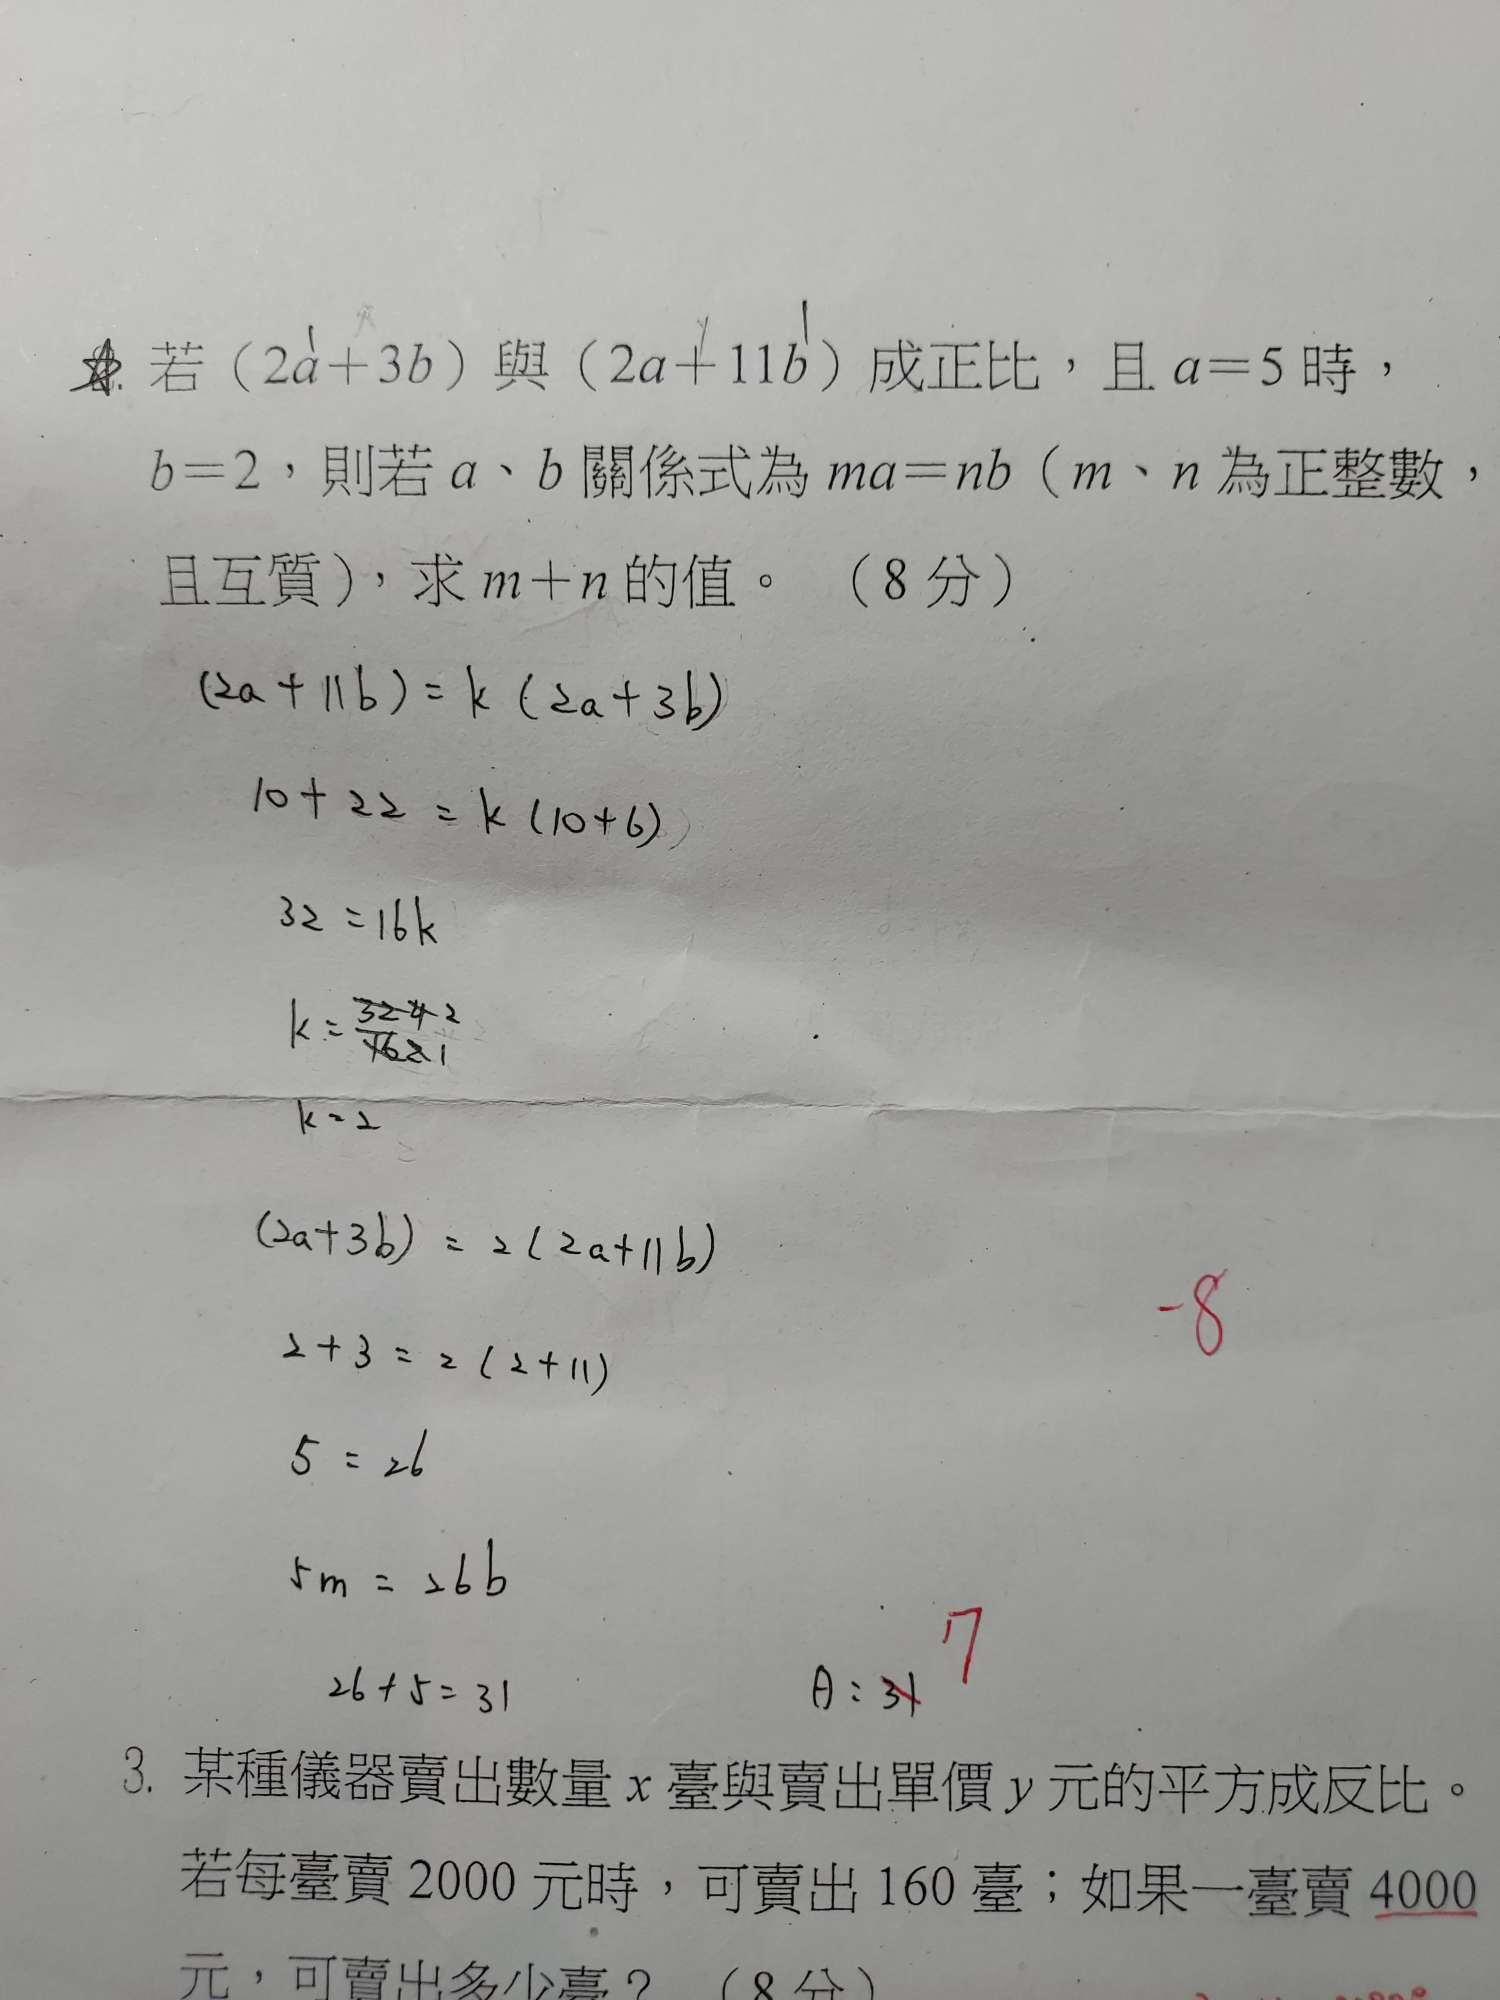 若（2a+3b）與（2a+11b）成正比，且 a=5 時，
b=2，則若 a、b 關係式為 ma=nb（m、n 為正整數，
且互質），求 m+n 的值。（8 分）
(2a+11b)=k(2a+3b)
10+22=k(10+6)
32=16k
k=
k=2
(2a+3b)=2(2a+11b)
2+3=2(2+11)
5=26
-8
5m=26b
26+5=31
A:31 7
3. 某種儀器賣出數量 x 臺與賣出單價 y 元的平方成反比。
若每臺賣 2000 元時，可賣出 160 臺；如果一臺賣 4000
元，可賣出多少臺？（8 分）